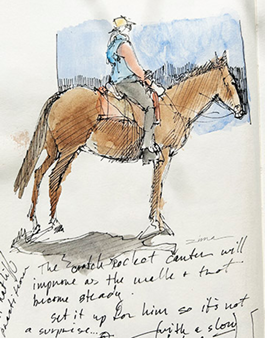 The "crotch rocket canter will
improve as the walk & trot
become steady.
set it up for him so it's not
a surprise... (with a slow)